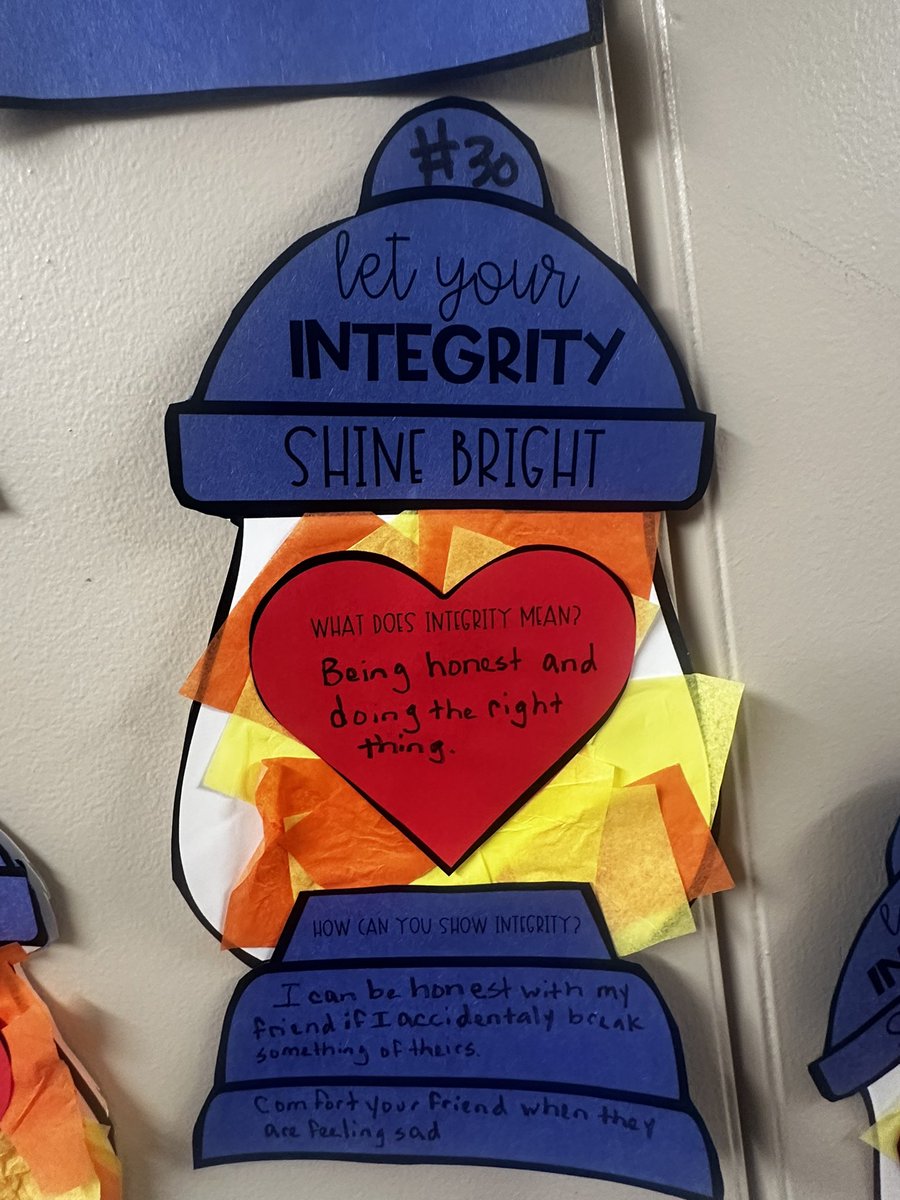 #30
let your
INTEGRITY
SHINE BRIGHT
WHAT DOES INTEGRITY MEAN?
Being honest and
doing the right
thing.
HOW CAN YOU SHOW INTEGRITY?
I can be honest with my
friend if I accidentaly break
something of theirs.
Comfort your friend when they
are feeling sad